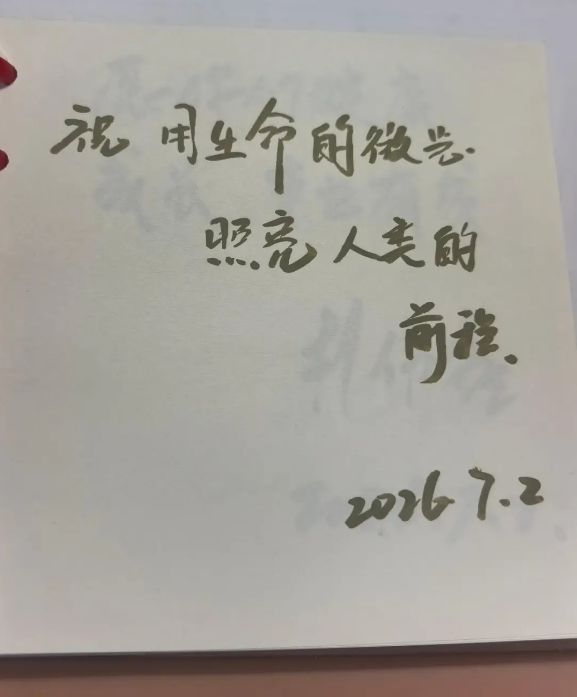 祝 用生命的微光
照亮人类的
前程.
2026 7.2